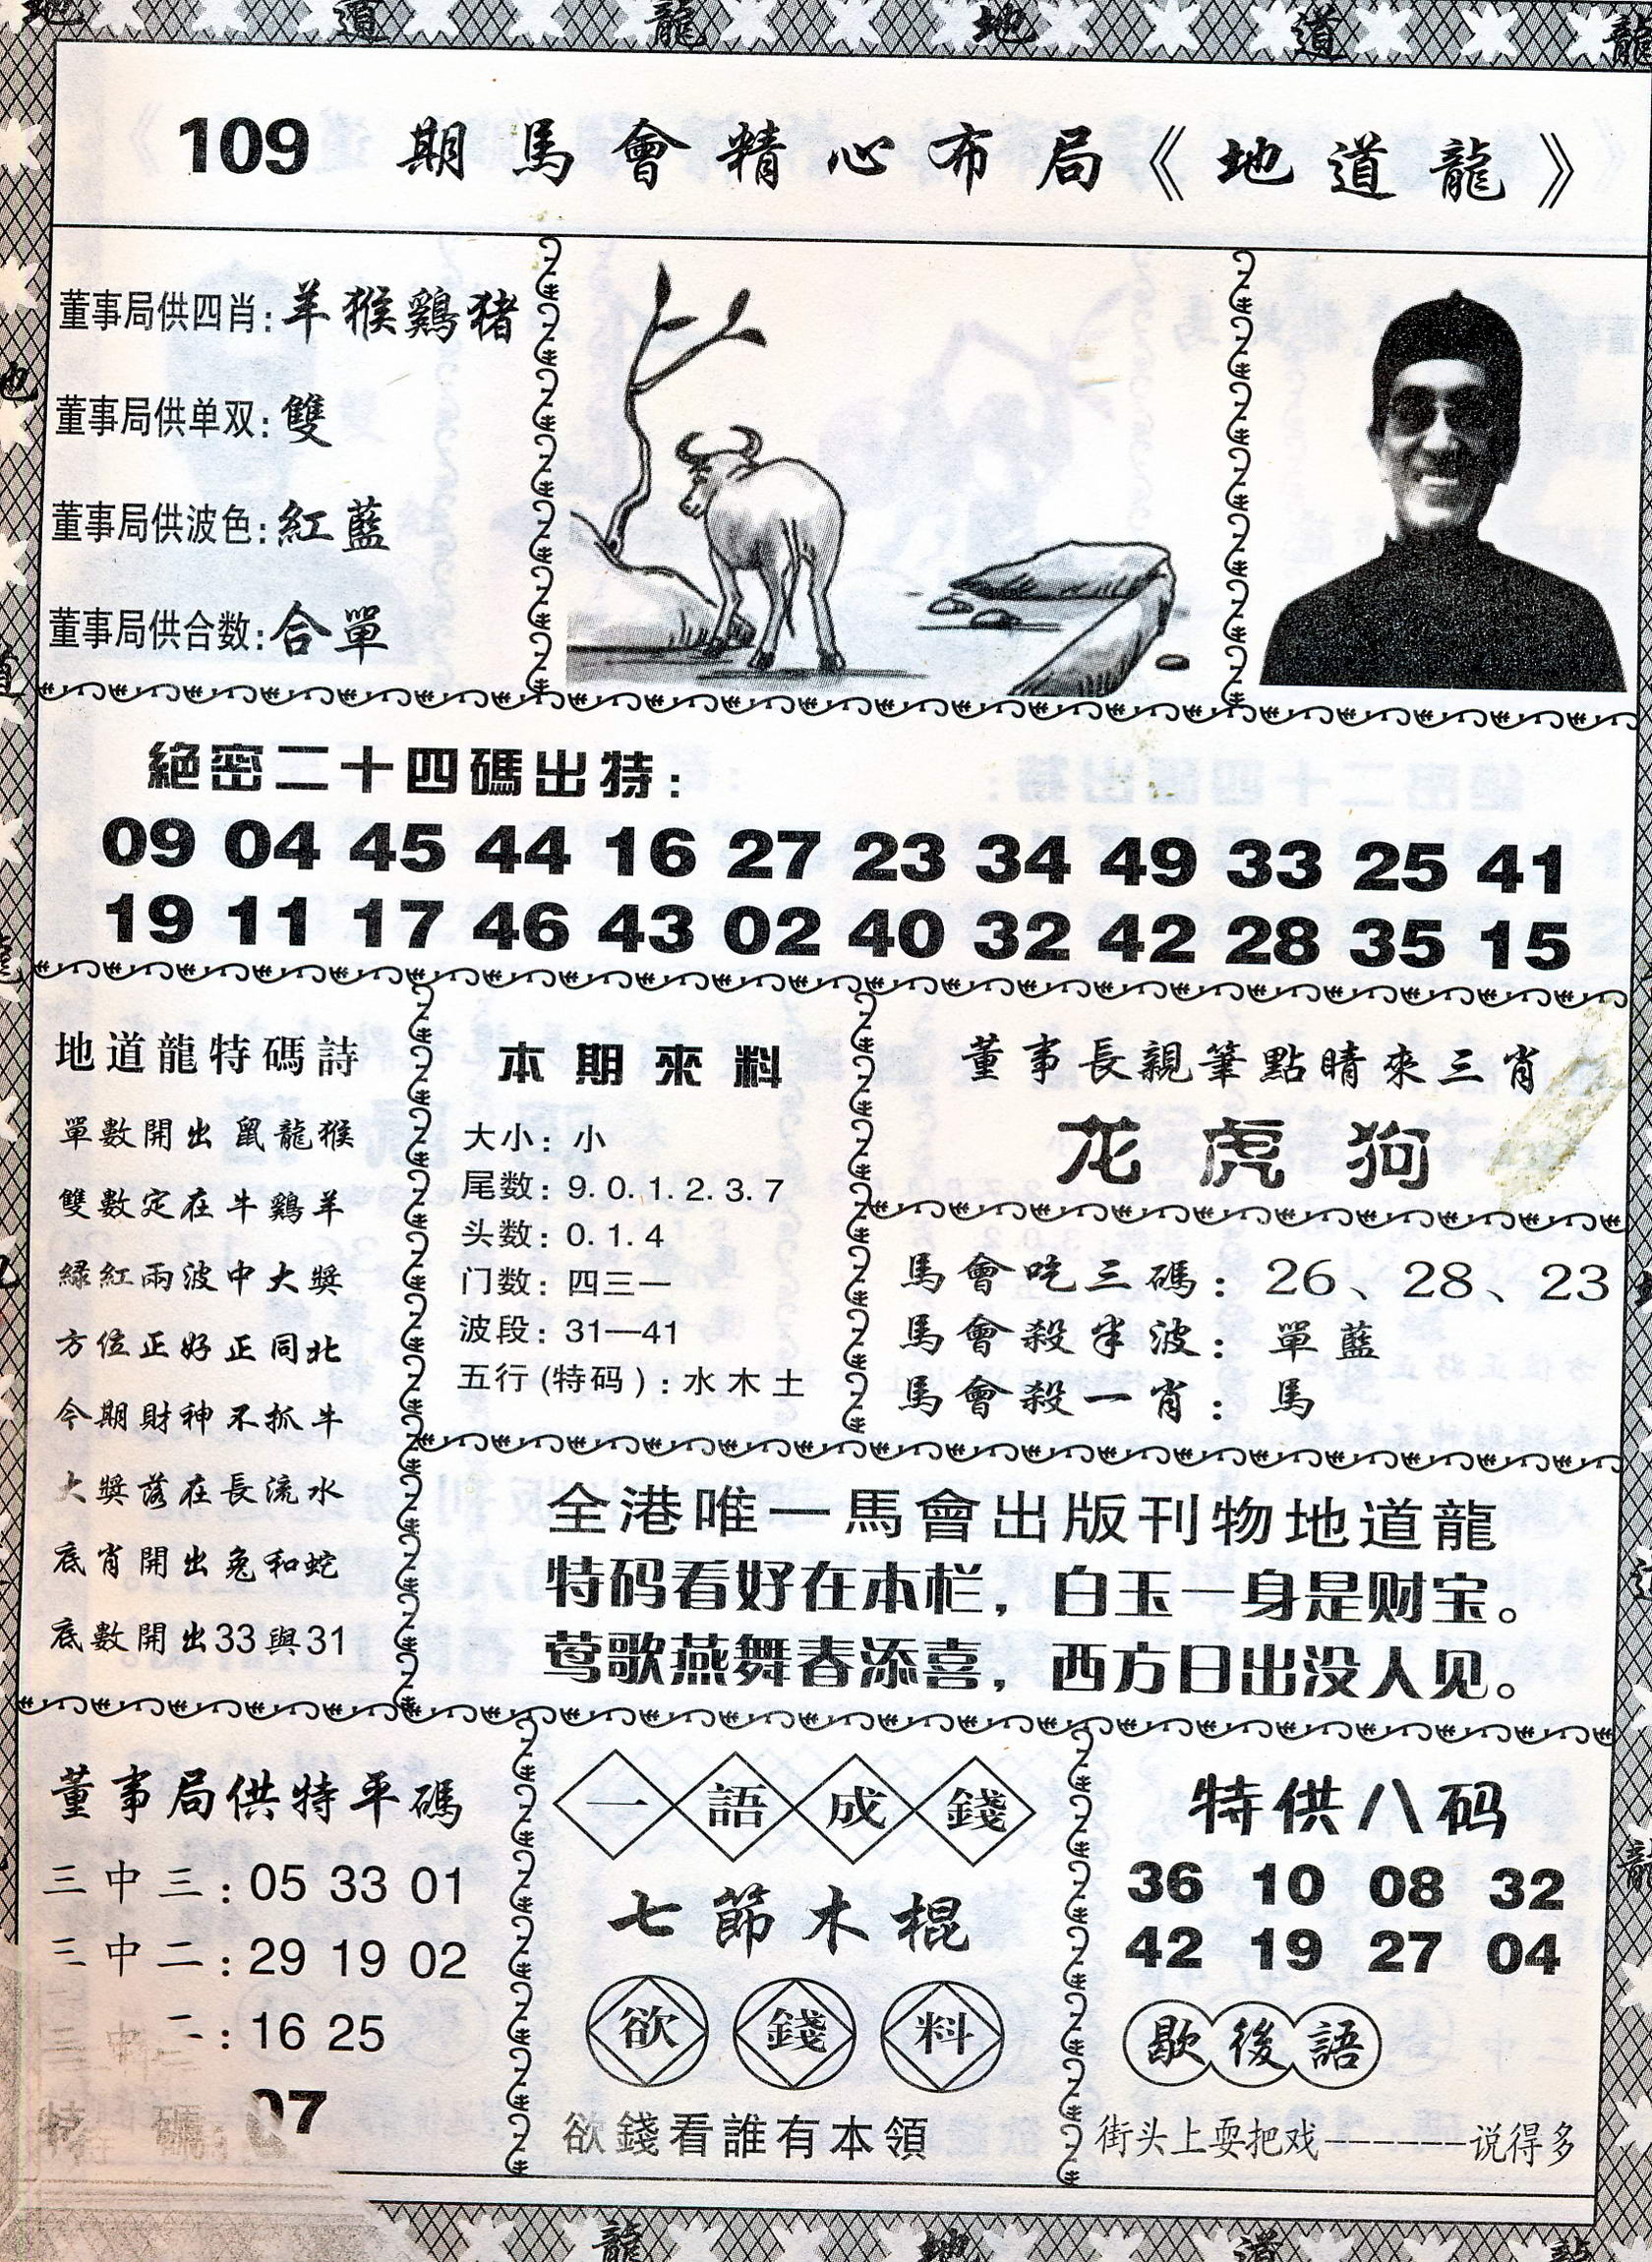 地 道 龍 地 道 龍
109 期馬會精心布局《地道龍》
董事局供四肖:羊猴鷄猪
董事局供单双:雙
董事局供波色:紅藍
董事局供合数:合單
絕密二十四碼出特:
09 04 45 44 16 27 23 34 49 33 25 41
19 11 17 46 43 02 40 32 42 28 35 15
地道龍特碼詩
單數開出鼠龍猴
雙數定在牛鷄羊
緑紅兩波中大獎
方位正好正同北
今期財神不抓牛
大獎落在長流水
底肖開出兔和蛇
底數開出33與31
本期來料
大小:小
尾数:9.0.1.2.3.7
头数:0.1.4
门数:四三一
波段:31—41
五行(特码):水木土
董事長親筆點睛來三肖
龙虎狗
馬會吃三碼:26、28、23
馬會殺半波:單藍
馬會殺一肖:馬
全港唯一馬會出版刊物地道龍
特码看好在本栏,白玉一身是财宝。
莺歌燕舞春添喜,西方日出没人见。
董事局供特平碼
三中三:05 33 01
三中二:29 19 02
三中二:16 25
特碼:07
一語成錢
七節木棍
欲錢料
欲錢看誰有本領
特供八码
36 10 08 32
42 19 27 04
歇後語
街头上耍把戏------说得多
龍 地 道 龍